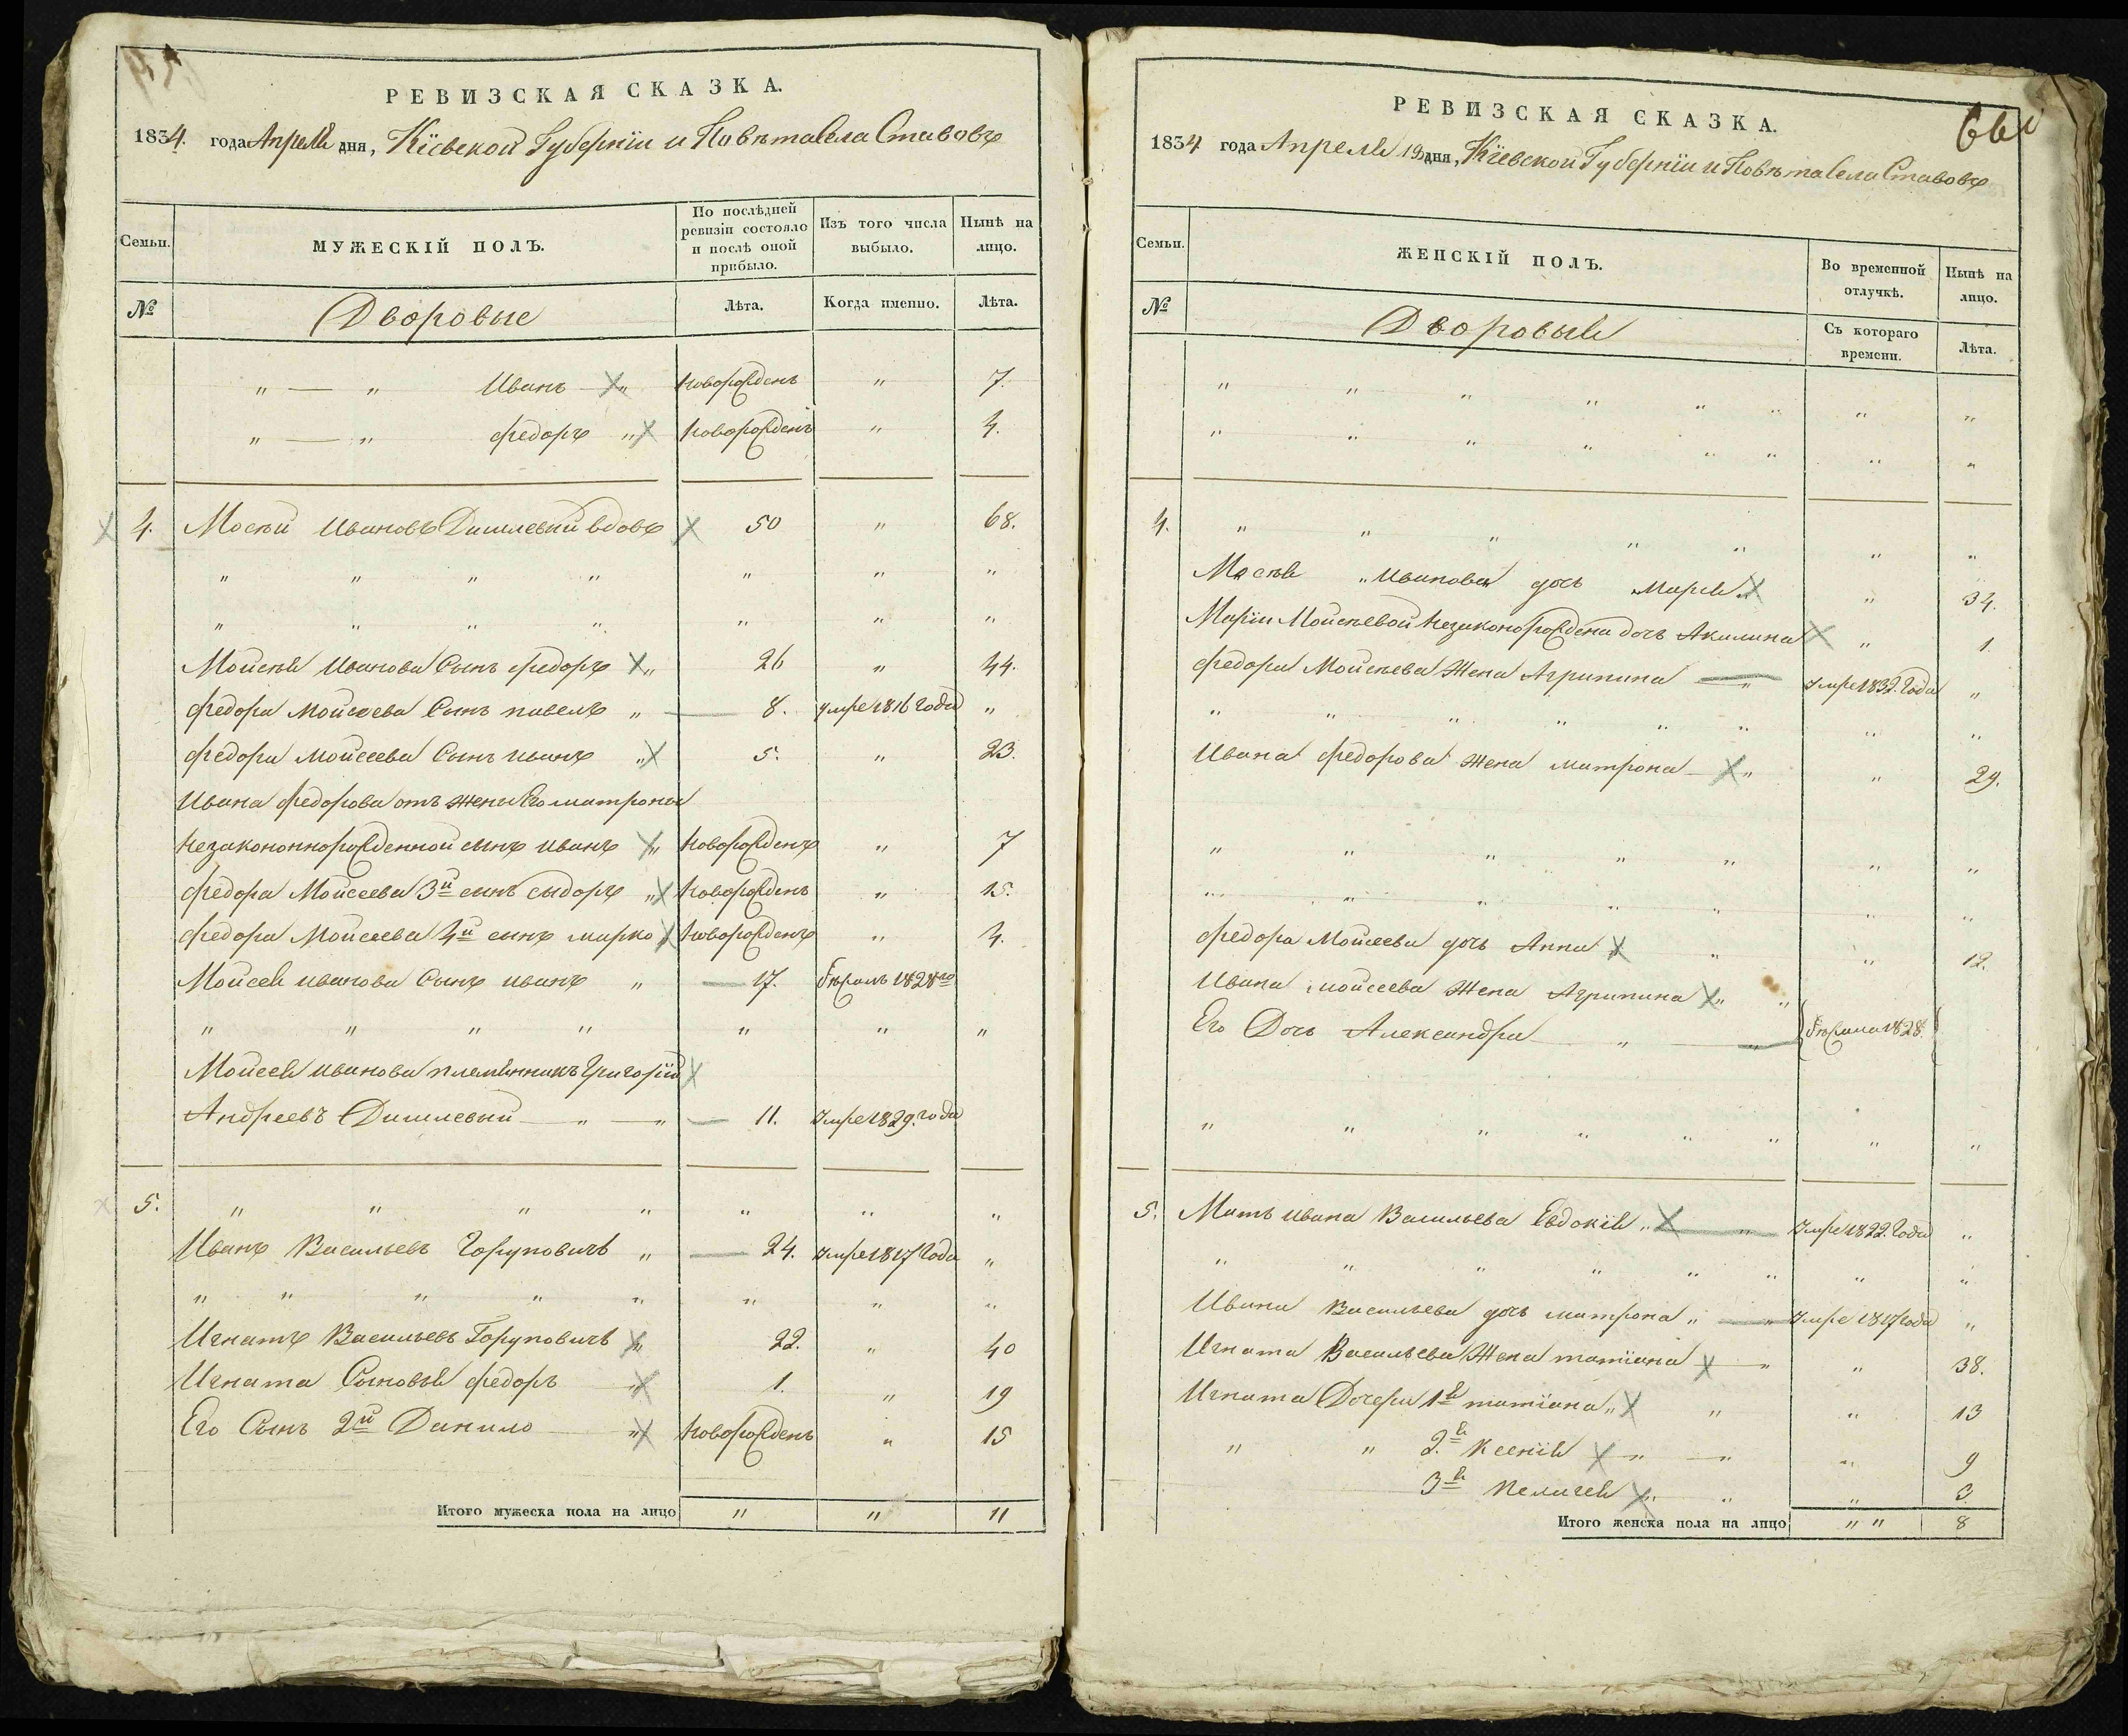 РЕВИЗСКАЯ СКАЗКА.
1834. года Апреля дня, Кіевской Губерніи и Повѣта Села Ставовъ
Семьи.
МУЖЕСКІЙ ПОЛЪ.
По послѣдней ревизіи состояло и послѣ оной прибыло.
Изъ того числа выбыло.
Нынѣ на лицо.
№
Дворовые
Лѣта.
Когда именно.
Лѣта.
" — " Иванъ " новорожденъ " 7.
" — " федоръ " новорожденъ " 4.
4. Мосѣй Ивановъ вдовъ 50 " 68.
" " " " " " "
" " " " " " "
Мойсѣя Иванова Сынъ федоръ " 26 " 44.
федора Мойсеева Сынъ павелъ " 8. умре 1816 года "
федора Мойсеева Сынъ иванъ " 5. " 23.
Ивана федорова отъ жены Его матроны
незаконнорожденной сынъ иванъ " новорожденъ " 7
федора Мойсеева 3й сынъ сыдоръ " новорожденъ " 15.
федора Мойсеева 4й сынъ марко " новорожденъ " 4.
Мойсея иванова Сынъ иванъ " 17. бѣжалъ 1828го
" " " " " " "
Мойсея иванова племѣнникъ Григорій
Андреевъ " " 11. Умре 1829. года
5. " " " " " " "
Иванъ Васильевъ Горуповичъ " 24. Умре 1817 года "
" " " " " " " "
Игнатъ Васильевъ Горуповичъ " 22. " 40
Игната Сыновья федоръ " 1. " 19
Его Сынъ 2й Данило " новорожденъ " 15
Итого мужеска пола на лицо " " 11
661
РЕВИЗСКАЯ СКАЗКА.
1834 года Апреля 19 дня, Кіевской Губерніи и Повѣта Села Ставовъ
Семьи.
ЖЕНСКІЙ ПОЛЪ.
Во временной отлучкѣ.
Нынѣ на лицо.
№
Дворовыя
Съ котораго времени.
Лѣта.
" " " " " " " "
" " " " " " " "
4. " " " " " " "
Мосѣя " Иванова дочь Марія " " 34.
Маріи Мойсѣевой незаконорождена дочь Акилина " 1.
федора Мойсѣева Жена Агрипина " Умре 1832. года "
" " " " " " " "
Ивана федорова жена матрона " " 29.
" " " " " " "
" " " " " " "
федора Мойсеева дочь Анна " " 12.
Ивана мойсеева Жена Агрипина " "
Его Дочь Александра " " бѣжали 1828.
" " " " " " " "
5. Мать ивана Васильева Евдокія " " Умре 1822. года "
" " " " " " " "
Ивана Васильева дочь матрона " " Умре 1817 года "
Игната Васильева Жена татіана " " 38.
Игната Дочери 1я татіана " " " 13
" " 2я Ксенія " " " 9
3я Пелагея " " " 3
Итого женска пола на лицо " " 8